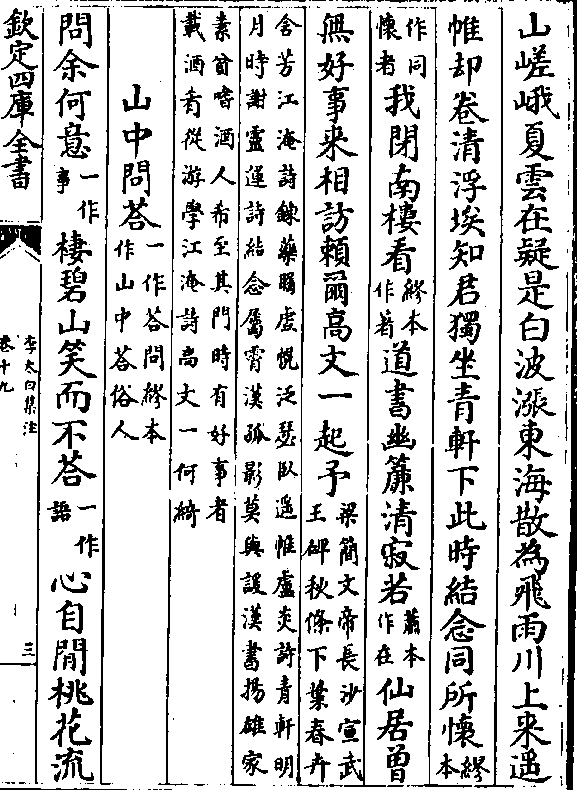 山嵯峨夏雲在疑是白波漲東海散為飛雨川上來遥
帷却卷清浮埃知君獨坐青軒下此時結念同所懷繆本
作同懷者我閉南樓看繆本作著道書幽簾清寂若蕭本作在仙居曾
無好事來相訪頼爾高文一起予梁簡文帝長沙宣武
王碑秋條下葉春卉
含芳江淹詩鍊藥矚虚幌泛瑟臥遥帷盧炎詩青軒明
月時謝靈運詩結念屬霄漢孤影莫與諼漢書揚雄家
素貧嗜酒人希至其門時有好事者
載酒肴從游學江淹詩高文一何綺
山中問荅一作荅問繆本作山中荅俗人
問余何意一作事棲碧山笑而不荅一作語心自閒桃花流
欽定四庫全書
李太白集注
卷十九
三